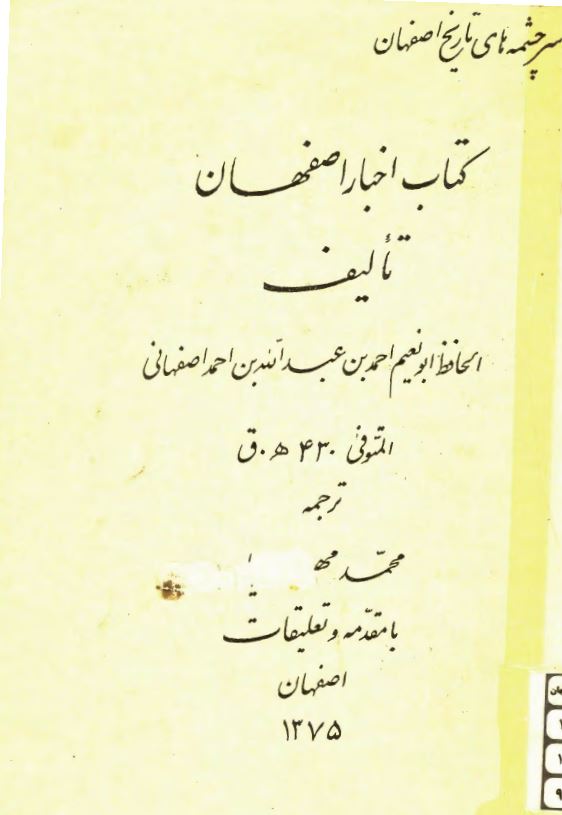 سرچشمه های تاریخ اصفهان
کتاب اخبار اصفهان
تألیف
الحافظ ابونعیم احمد بن عبدالله بن احمد اصفهانی
المتوفی ۴۳۰ ه.ق
ترجمه
محمّد
با مقدّمه و تعلیقات
اصفهان
۱۳۷۵